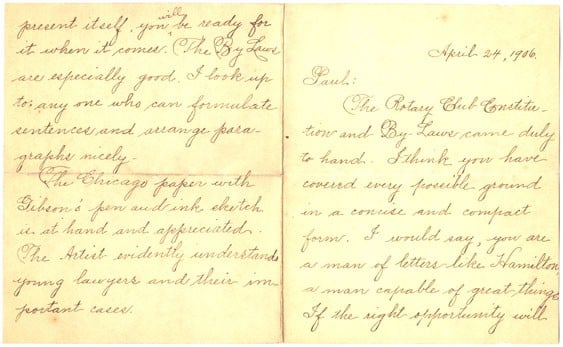 April 24, 1906.
Paul:
The Rotary Club Constitu-
tion and By-Laws came duly
to hand. I think you have
covered every possible ground
in a concise and compact
form. I would say, you are
a man of letters like Hamilton,
a man capable of great things
If the right opportunity will
present itself, you will be ready for
it when it comes. The By Laws
are especially good. I look up
to any one who can formulate
sentences and arrange para-
graphs nicely.
The Chicago paper with
Gibson's pen and ink sketch
is at hand and appreciated.
The Artist evidently understands
young lawyers and their im-
portant cases.